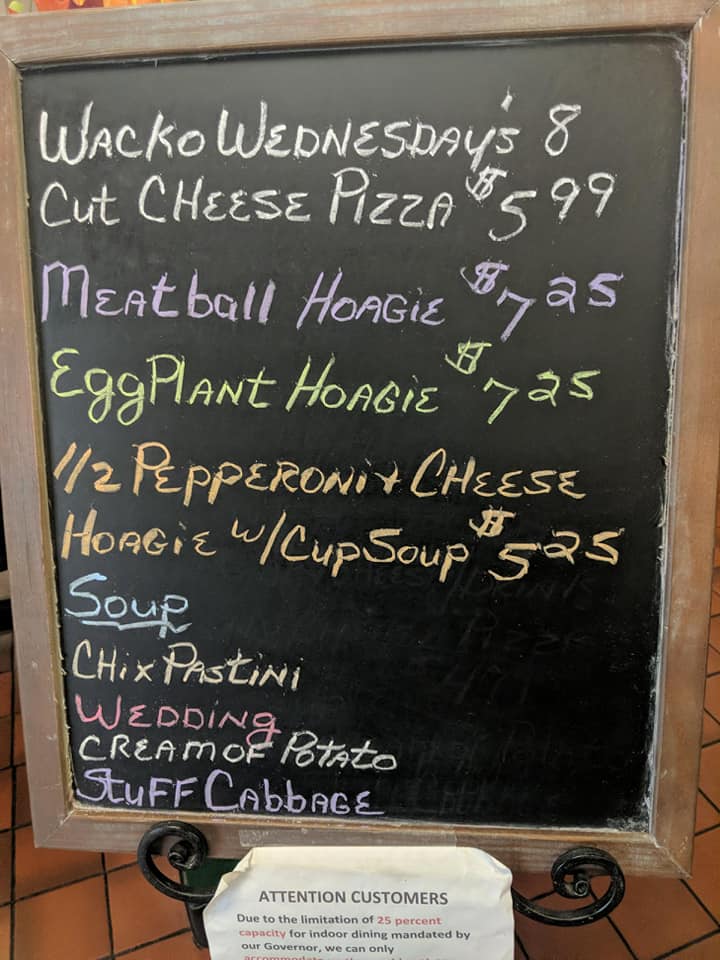 WACKO WEDNESDAY'S 8
Cut CHEESE PIZZA $5 99
MEAtball HOAGIE $7 25
EggPlANt HOAGIE $7 25
1/2 PEPPERONI + CHEESE
HOAGIE w/Cup Soup $5 25
Soup
CHix PAStiNi
WEDDiNg
CREAM OF POtAtO
StuFF CABBAGE
ATTENTION CUSTOMERS
Due to the limitation of 25 percent
capacity for indoor dining mandated by
our Governor, we can only